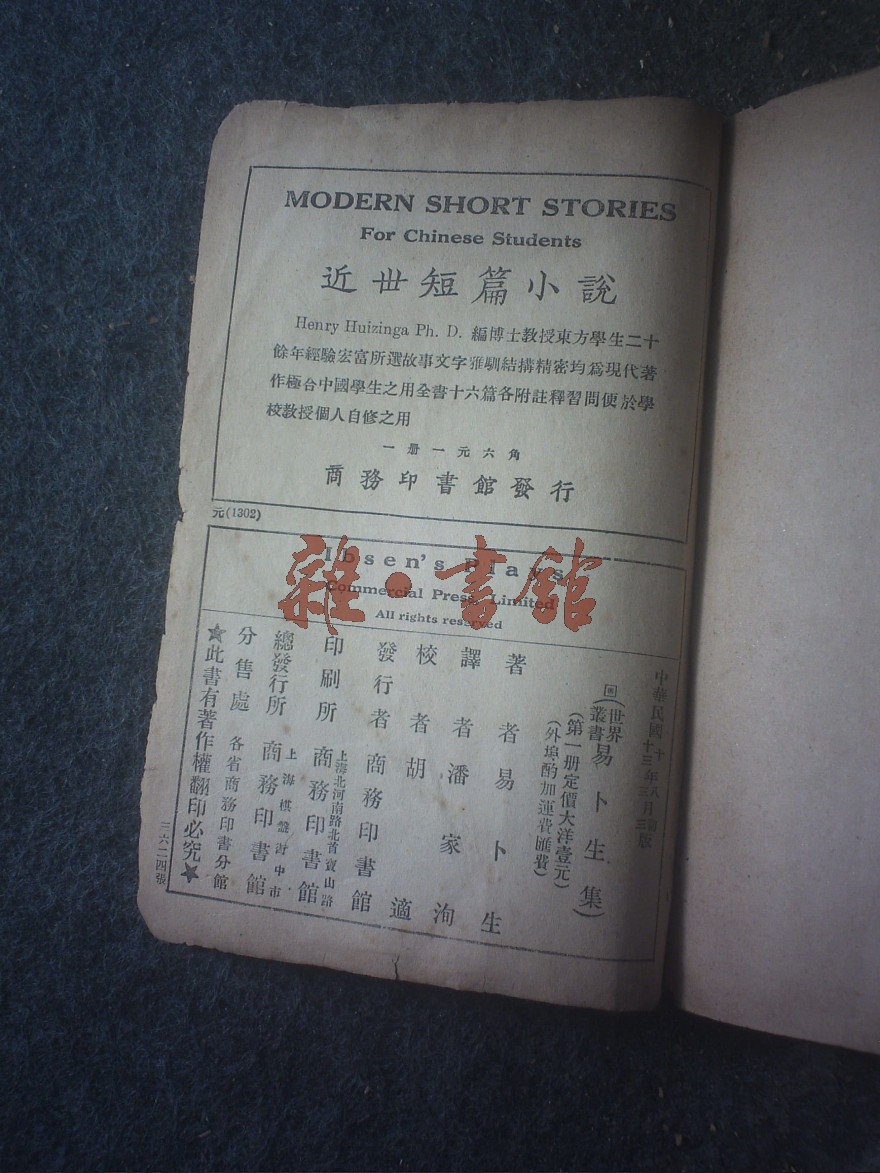 MODERN SHORT STORIES
For Chinese Students
近世短篇小說
Henry Huizinga Ph. D. 編博士教授東方學生二十
餘年經驗宏富所選故事文字雅馴結搆精密均爲現代著
作極合中國學生之用全書十六篇各附註釋習問便於學
校教授個人自修之用
一册一元六角
商務印書館發行
元(1302)
Ibsen's Plays
Commercial Press, Limited
All rights reserved
雜·書館
中華民國
十三年三月三版
(世界叢書)易卜生集)
(第一册定價大洋壹元)
(外埠酌加運費匯費)
著者易卜生
譯者潘家洵
校者胡適
發行者商務印書館
印刷所 上海北河南路北首寶山路 商務印書館
總發行所 上海棋盤街中市 商務印書館
分售處 各省商務印書分館
★此書有著作權翻印必究★
三六二四張